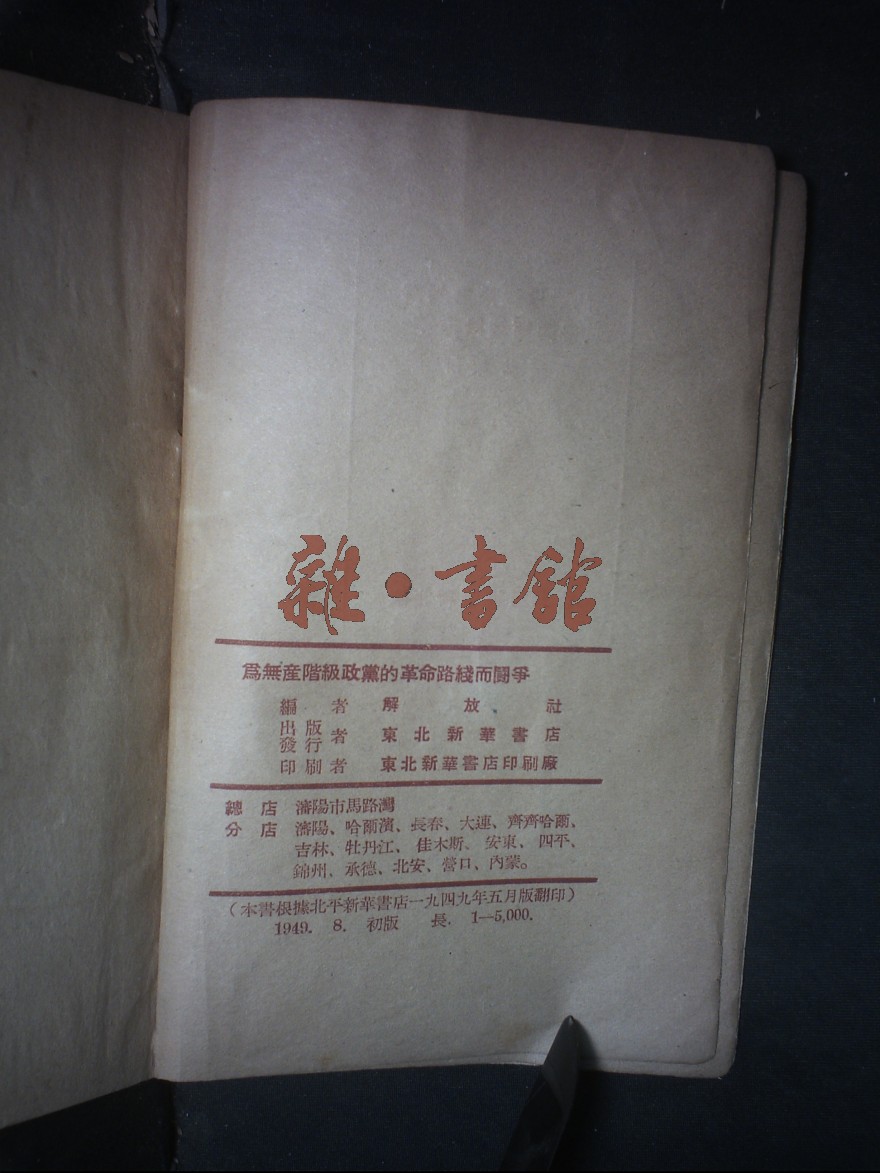 雜·書館
為無産階級政黨的革命路綫而鬪爭
編者 解放社
出版發行者 東北新華書店
印刷者 東北新華書店印刷廠
總店 瀋陽市馬路灣
分店 瀋陽、哈爾濱、長春、大連、齊齊哈爾、
吉林、牡丹江、佳木斯、安東、四平、
錦州、承德、北安、營口、內蒙。
(本書根據北平新華書店一九四九年五月版翻印)
1949. 8. 初版 長. 1—5,000.